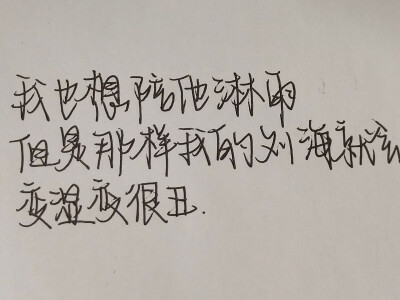 我也想陪他淋雨
但是那样我的刘海就会
变湿变很丑.